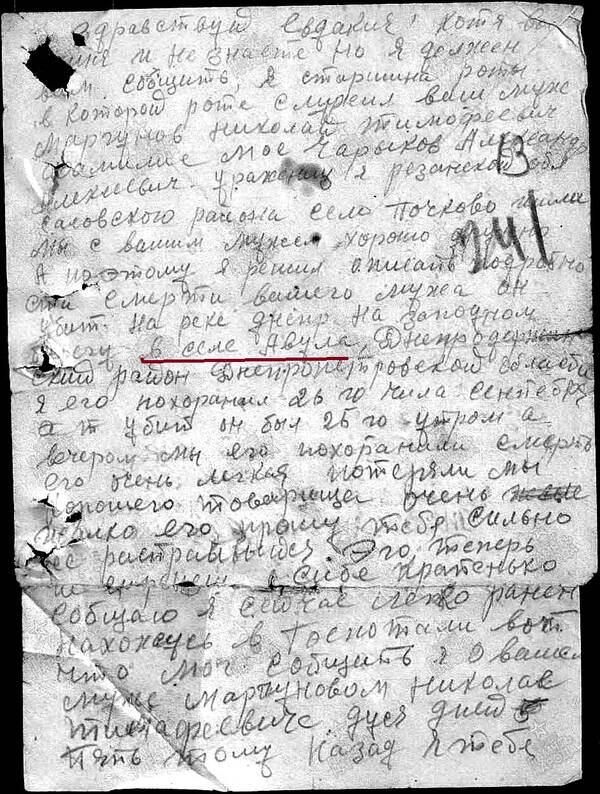 Здравствуй Евдакия! хотя вы
меня и не знаете но я должен
вам сообщить, я старшина роты
в которой роте служил ваш муж
Маргунов Николай Тимофеевич
фамилие мое Чарыков Александр
Алексеевич. ураженец я резанской обл
13
Сасовского района село Почково жили
мы с вашим мужем хорошо дружно
А поэтому я решил описать подробно
241
сти смерти вашего мужа он
убит на реке днепр на западном
берегу в селе Авула Днепродзержин
ский район Днепропетровской области
я его похоранил 26 го числа сентебря
а убит он был 25 го утром а
вечером мы его похоранили смерть
его очень легкая потеряли мы
хорошего товарища очень
жалко его прошу тебя сильно
не растраивыйся. Эго теперь
не вернеш о себе кратенько
Сообщаю я сейчас легко ранен
нахожусь в Госпотали вот
что мог сообщить я о вашем
муже Маргуновом Николае
Тимафеевиче. дуся дней
пять тому назад я тебе